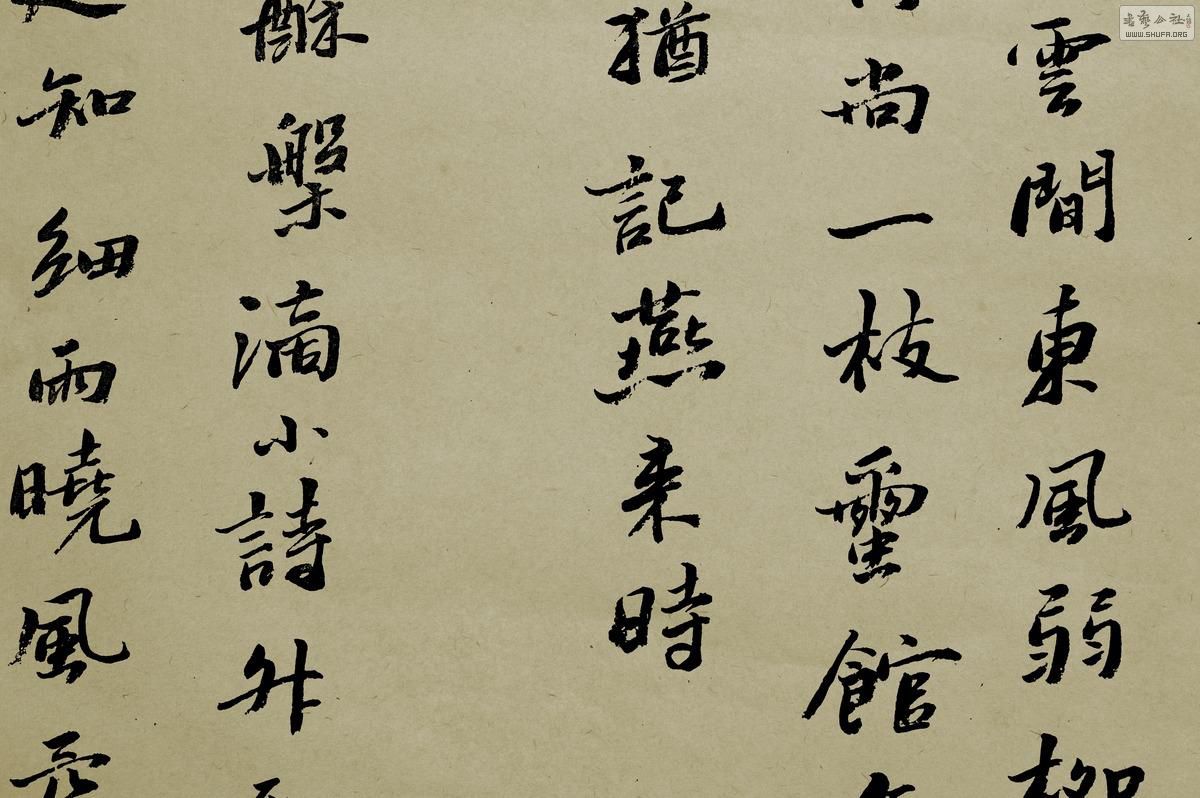 雲間東風弱柳
尚一枝館
猶記燕来時
酥槃滴小詩外
知細雨曉風
書藝公社
WWW.SHUFA.ORG